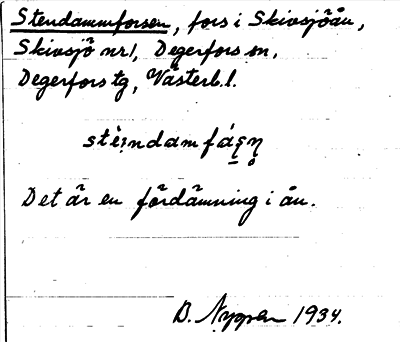 Stendammforsen, fors i Skivsjöån,
Skivsjö nr 1, Degerfors sn,
Degerfors tg, Västerb. l.
Det är en fördämning i ån.
B. 1934.